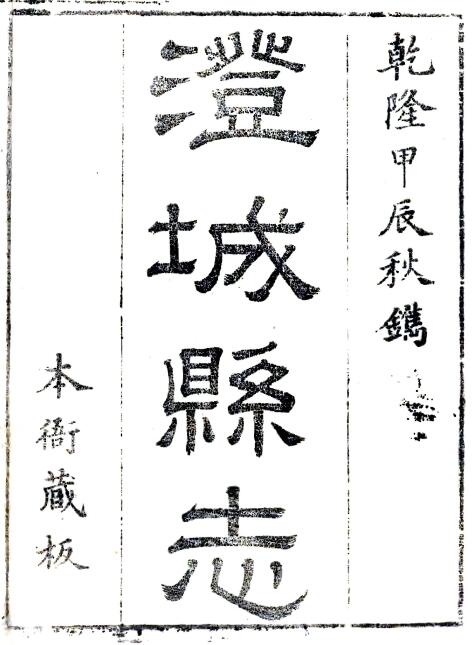 乾隆甲辰秋鐫
澄城縣志
本衙蔵板